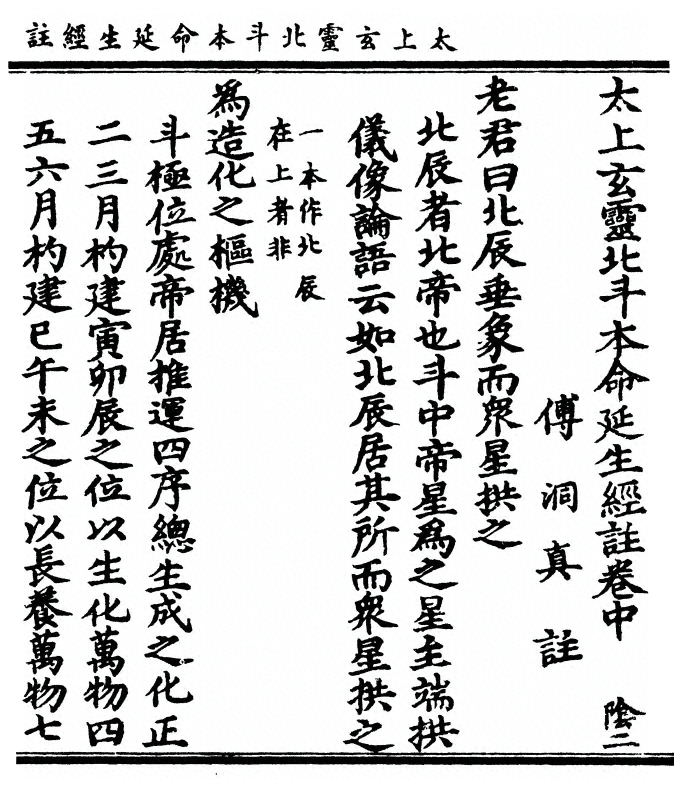 太上玄靈北斗本命延生經註
太上玄靈北斗本命延生經註卷中 陰二
傅洞真註
老君曰北辰垂象而衆星拱之
北辰者北帝也斗中帝星爲之星主端拱
儀像論語云如北辰居其所而衆星拱之
一本作北辰
在上者非
爲造化之樞機
斗極位處帝居推運四序總生成之化正
二三月杓建寅卯辰之位以生化萬物四
五六月杓建巳午未之位以長養萬物七